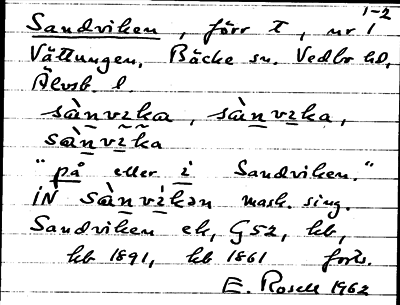 1-2
Sandviken, förr t, nr 1
Vättungen, Bäcke sn. Vedbo hd,
Älvsb. l.
sànvıka, sànvıka,
sànvıka
"på eller i Sandviken."
IN sànvıkən mask. sing.
Sandviken ek, G52, hb,
hb 1891, hb 1861 forts.
E. Rosell 1962